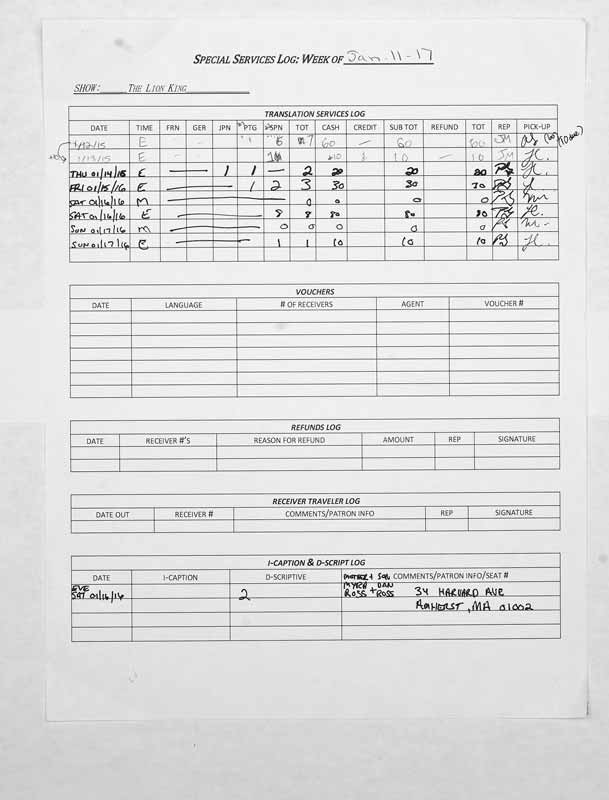 SPECIAL SERVICES LOG: WEEK OF Jan. 11-17
SHOW: THE LION KING
TRANSLATION SERVICES LOG
DATE TIME FRN GER JPN PTG SPN TOT CASH CREDIT SUB TOT REFUND TOT REP PICK-UP
1/12/15 E 6 7 60 — 60 — JM
1/13/15 E 10 — 10 JM
THU 01/14/15 E 1 1 — 2 20 20 20
FRI 01/15/16 E 1 2 3 30 30 30
SAT 01/16/16 M 0 0 0 0
SAT 01/16/16 E 8 8 80 80 80
SUN 01/17/16 M 0 0 0 0 0
SUN 01/17/16 E 1 1 10 10 10
VOUCHERS
DATE LANGUAGE # OF RECEIVERS AGENT VOUCHER #
REFUNDS LOG
DATE RECEIVER #'S REASON FOR REFUND AMOUNT REP SIGNATURE
RECEIVER TRAVELER LOG
DATE OUT RECEIVER # COMMENTS/PATRON INFO REP SIGNATURE
I-CAPTION & D-SCRIPT LOG
DATE I-CAPTION D-SCRIPTIVE MOTHER + SON COMMENTS/PATRON INFO/SEAT #
EVE SAT 01/16/16 2 MYRA ROSS + DAN ROSS 34 HARVARD AVE
AMHERST, MA 01002